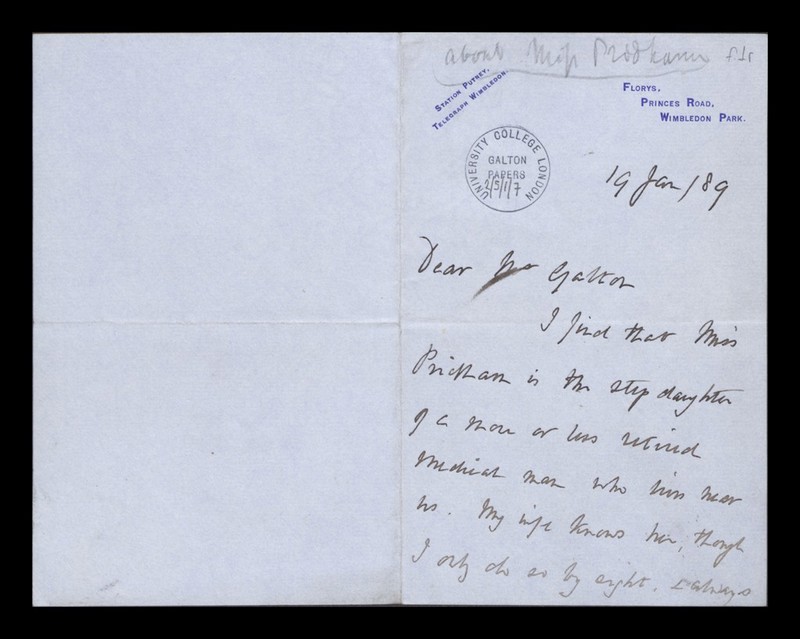 about Miss
STATION PUTNEY.
TELEGRAPH WIMBLEDON.
FLORYS,
PRINCES ROAD,
WIMBLEDON PARK.
UNIVERSITY COLLEGE LONDON
GALTON
PAPERS
2/5/1/7
19 Jan / 89
Dear Mr Galton
I find that Miss
is the step daughter
of a more or less retired
medical man who lives near
us. My wife knows her, though
I only do so by sight. & always